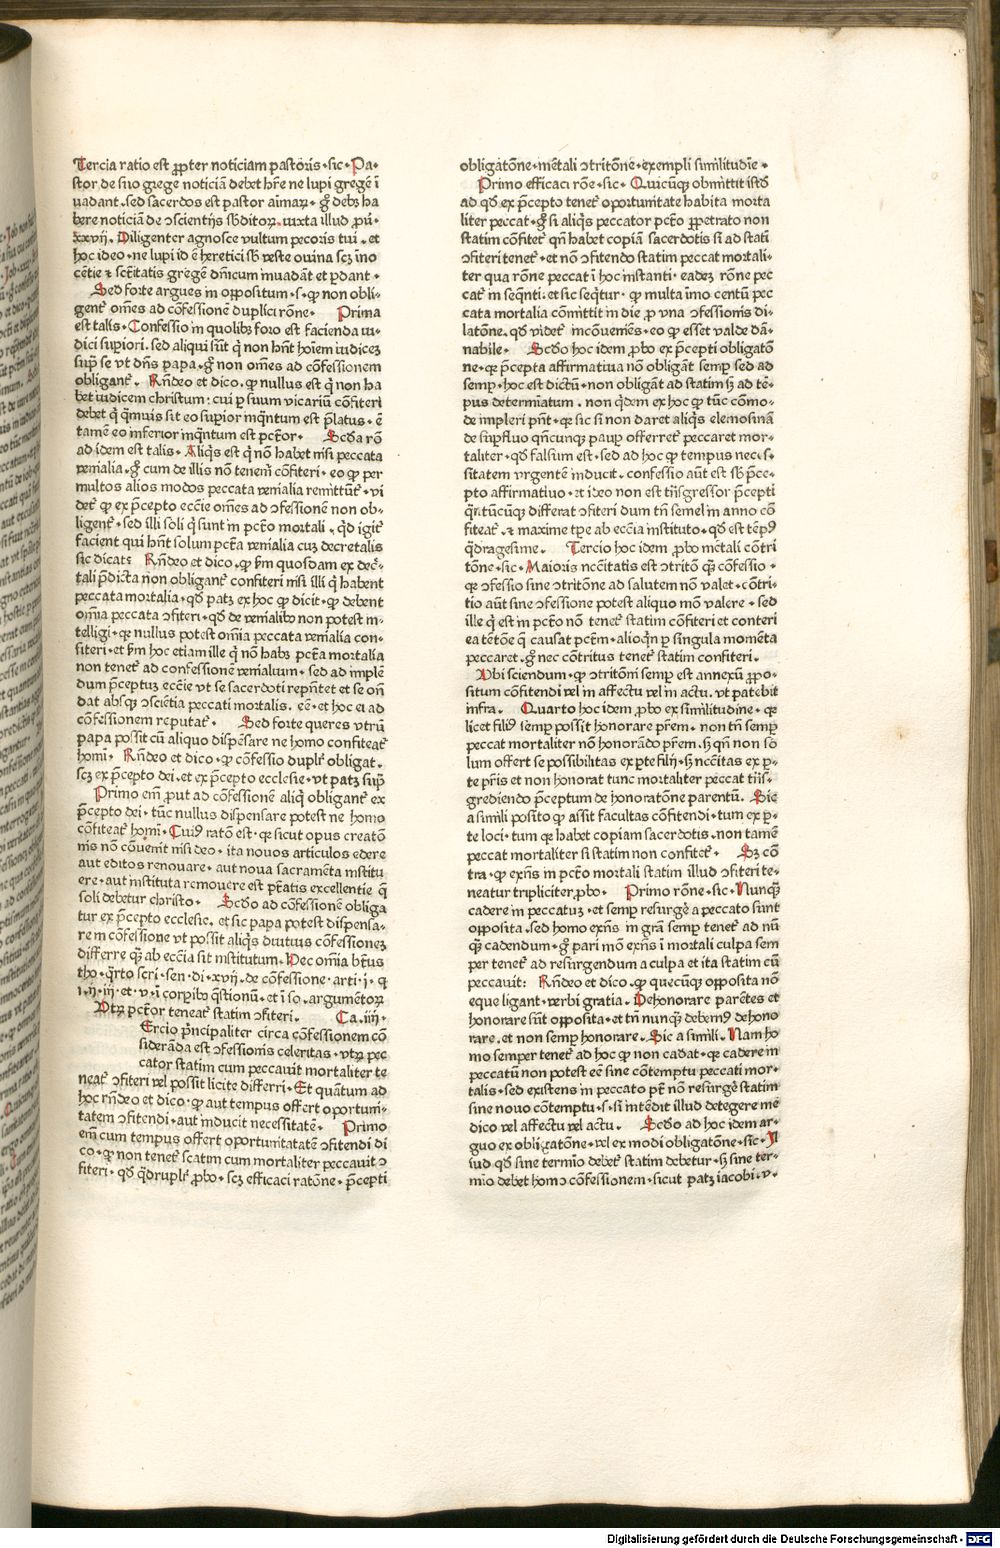 Tercia ratio est ꝓpter noticiam pastoris · sic · Pa-
stor de suo grege noticiā debet hr̄e ne lupi gregē ī
uadant . sed sacerdos est pastor aīmaꝝ · g̊ debꝫ ha
bere noticiā de ɔscientijs sb̄ditoꝝ . iuxta illud ꝓū .
xxvij . Diligenter agnosce vultum pecoris tui . et
hoc ideo · ne lupi id ē heretici sb̄ veste ouina scꝫ īno
cētie ⁊ sc̄titatis gregē dn̄icum inuadāt et ꝑdant ·
Sed forte argues in oppositum · s · ꝙ non obli-
gent᷑ om̄es ad cōfessionē duplici rōne · Prima
est talis · Confessio in quolibꝫ foro est facienda iu-
dici suꝑiori . sed aliqui sūt q̄ non hn̄t hoīem iudiceꝫ
sup̄ se vt dn̄s papa . g̊ non om̄es ad cōfessionem
obligant᷑ . Rn̄deo et dico . ꝙ nullus est q̄ non ha
bet iudicem christum : cui ꝑ suum vicariū cōfiteri
debet q̄ q̄muis sit eo suꝑior inq̄ntum est p̄latus · ē
tamē eo inferior inq̄ntum est pctōr · Scd̄a rō
ad idem est talis · Aliq̄s est q̄ nō habet nisi peccata
venialia · g̊ cum de illis nō teneat᷑ cōfiteri · eo ꝙ per
multos alios modos peccata venialia remittūt᷑ · vi
det᷑ ꝙ ex p̄cepto ecc̄ie om̄es ad ɔfessionē non ob-
ligent᷑ · sed illi soli q̄ sunt in pctō mortali . q̄d igit᷑
facient qui hn̄t solum pctā venialia cuꝫ decretalis
sic dicat : Rn̄deo et dico . ꝙ ẜm quosdam ex decre-
tali p̄dicta non obligant᷑ confiteri nisi illi q̄ habent
peccata mortalia · qd̄ patꝫ ex hoc ꝙ dicit · ꝙ debent
om̄ia peccata ɔfiteri · qd̄ de venialibꝰ non potest in-
telligi · qꝛ nullus potest om̄ia peccata venialia con-
fiteri · et ẜm hoc etiam ille q̄ nō habꝫ pctā mortalia
non tenet᷑ ad confessionē venialium · sed ad implē
dum p̄ceptuꝫ ecc̄ie vt se sacerdoti rep̄ntet et se on̄
dat absqꝫ ɔsciētia peccati mortalis . eē · et hoc ei ad
cōfessionem reputat᷑ · Sed forte queres vtrū
papa possit cū aliquo dispēsare ne homo confiteat᷑
homī · Rn̄deo et dico · ꝙ cōfessio duplr̄ obligat .
scꝫ ex p̄cepto dei . et ex p̄cepto ecclesie · vt patꝫ sup̄
Primo em̄ ꝓut ad cōfessionē aliq̄ obligant᷑ ex
p̄cepto dei · tūc nullus dispensare potest ne homo
cōfiteat᷑ homī · Cuiꝰ ratō est · qꝛ sicut opus creatō
nis nō cōuenit nisi deo · ita nouos articulos edere
aut editos renouare · aut noua sacramēta institu
ere · aut instituta remouere est ptātis excellentie q̄
soli debetur christo · Scd̄o ad cōfessionē obliga
tur ex p̄cepto ecclesie . et sic papa potest dispensa-
re in cōfessione vt possit aliq̄s diutius cōfessioneꝫ
differre q̄ꝫ ab ecc̄ia sit institutum . Hec om̄ia btūs
tho · q̄rto scri · sen · di · xvij . de cōfessione · arti · j · q
i · ij · iij · et · v · ī corꝑibꝰ q̄stionū · et ī so . argumētoꝝ
Vtꝝ pctōr teneat᷑ statim ɔfiteri . Ca . iiij ·
Ercio p̄ncipaliter circa cōfessionem cō
siderāda est ɔfessionis celeritas · vtꝝ pec
cator statim cum peccauit mortaliter te
neat᷑ ɔfiteri vel possit licite differri · Et quātum ad
hoc rn̄deo et dico · ꝙ aut tempus offert oportuni-
tatem ɔfitendi · aut inducit necessitatē · Primo
em̄ cum tempus offert oportunitatatē ɔfitendi di
co · ꝙ non tenet᷑ statim cum mortaliter peccauit ɔ
fiteri · qd̄ q̄druplr̄ ꝓbo · scꝫ efficaci ratōne · p̄cepti
obligatōne · mētali ɔtritōne · exempli simi̇litudīe ·
Primo efficaci rōe · sic · Quicūqꝫ obmittit istd̄
ad qd̄ ex p̄cepto tenet᷑ oportunitate habita morta
liter peccat · g̊ si aliq̄s peccator pctō ꝑpetrato non
statim cōfitet᷑ qn̄ habet copiā sacerdotis si ad statī
ɔfiteri tenet᷑ · et nō ɔfitendo statim peccat mortali-
ter qua rōne peccat ī hoc instanti · eadeꝫ rōne pec
cat᷑ in seq̄nti · et sic seq̄tur · ꝙ multa īmo centū pec
cata mortalia cōmittit in die ꝓ vna ɔfessionis di-
latōne . qd̄ videt᷑ incōueniēs · eo ꝙ esset valde dā-
nabile · Scd̄o hoc idem ꝓbo ex p̄cepti obligatō
ne · qꝛ p̄cepta affirmatiua nō obligāt semꝑ sed ad
semꝑ · hoc est dictū · non obligāt ad statim sꝫ ad tē-
pus determīatum . non q̄dem ex hoc ꝙ tūc cōmo-
de impleri pn̄t · qꝛ sic si non daret aliq̄s elemosinā
de suꝑfluo qn̄cunqꝫ pauꝑ offerret᷑ peccaret mor-
taliter · qd̄ falsum est · sed ad hoc ꝙ tempus neces-
sitatem vrgentē inducit . confessio aūt est sb̄ p̄ce-
pto affirmatiuo · ⁊ ideo non est trn̄sgressor p̄cepti
q̄ntūcūqꝫ differat ɔfiteri dum tn̄ semel in anno cō
fiteat᷑ . ⁊ maxime tꝑe ab ecc̄ia instituto · qd̄ est tēpꝰ
q̄dragesime . Tercio hoc idem ꝓbo mētali cōtri
tōne · sic · Maioris nccītatis est ɔtritō q̄ꝫ cōfessio ·
qꝛ ɔfessio sine ɔtritōne ad salutem nō valet · cōtri-
tio aūt sine ɔfessione potest aliquo mō valere · sed
ille q̄ est in pctō nō tenet᷑ statim cōfiteri et conteri
ea tētōe q̄ causat pctm̄ · alioq̄n ꝑ singula momēta
peccaret . g̊ nec cōtritus tenet᷑ statim confiteri .
Vbi sciendum · ꝙ ɔtritōni semꝑ est annexū ꝓpo-
situm cōfitendi vel in affectu vel in actu . vt patebit
infra . Quarto hoc idem ꝓbo ex similitudine · qꝛ
licet filiꝰ semꝑ possit honorare pr̄em . non tn̄ semꝑ
peccat mortaliter nō honorādo pr̄em . sꝫ qn̄ non so
lum offert se possibilitas ex ꝑte filij · sꝫ nccītas ex ꝑ-
te pr̄is et non honorat tunc mortaliter peccat trn̄s-
grediendo p̄ceptum de honoratōne parentū . Sic
a simili posito ꝙ assit facultas cōfitendi · tum ex ꝑ-
te loci · tum qꝛ habet copiam sacerdotis . non tamē
peccat mortaliter si statim non confitet᷑ · Sꝫ cō
tra · ꝙ exn̄s in pctō mortali statim illud ɔfiteri te-
neatur tripliciter ꝓbo · Primo rōne · sic · Nunqꝫ
cadere in peccatuꝫ · et semꝑ resurgēre a peccato sunt
opposita . sed homo exn̄s in gr̄a semꝑ tenet᷑ ad nū
q̄ꝫ cadendum · g̊ pari mō exn̄s ī mortali culpa sem
per tenet᷑ ad resurgendum a culpa et ita statim cū
peccauit : Rn̄deo et dico . ꝙ quecūqꝫ opposita nō
eque ligant · verbi gratia . Dehonorare parētes et
honorare sūt opposita · et tn̄ nunqꝫ debemꝰ dehono
rare . et non semꝑ honorare . Sic a simili . Nam ho
mo semper tenet᷑ ad hoc ꝙ non cadat · qꝛ cadere in
peccatū non potest eē sine cōtemptu peccati mor-
talis · sed existens in peccato pt̄ nō resurgē statim
sine nouo cōtemptu · s · si intēdit illud detegere me
dico vel affectu vel actu . Scd̄o ad hoc idem ar-
guo ex obligatōne · vel ex modi obligatōne · sic · Il
lud qd̄ sine termīo debet᷑ statim debetur · sꝫ sine ter-
mīo debet homo cōfessionem · sicut patꝫ iacobi · v ·
Digitalisierung gefördert durch die Deutsche Forschungsgemeinschaft - DFG